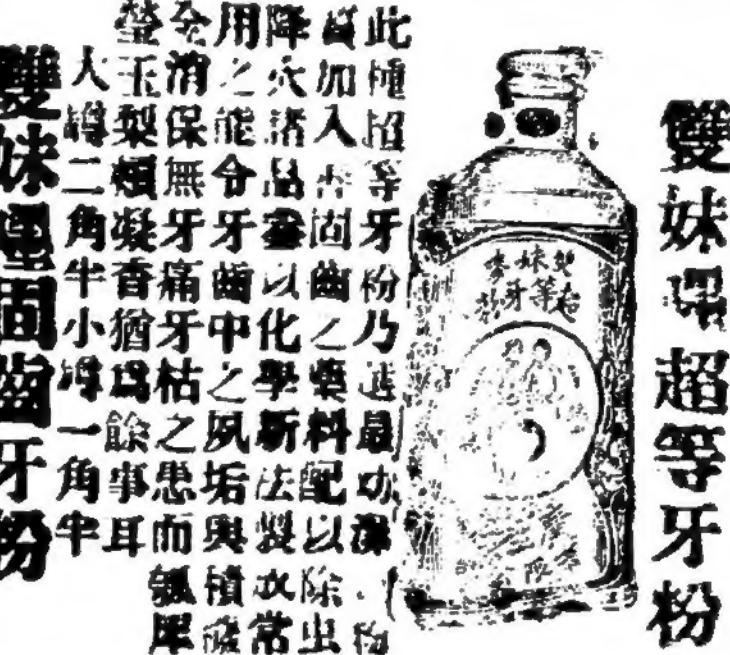 雙妹嚜超等牙粉
此種超等牙粉乃選最潔粉
質加入香固齒之藥料配以除虫
降火諸品以化學新法製成常
用之能令牙齒中之夙垢與積穢
全消保無牙痛牙枯之患而瓠犀
瑩玉梨頰凝香猶爲餘事耳
大樽二角半小樽一角半
雙妹嚜固齒牙粉